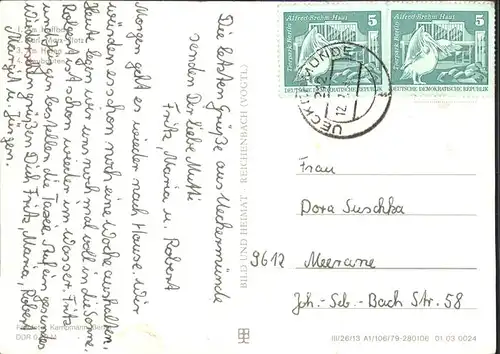 Die letzten Grüße aus Ueckermünde
senden Dir liebe Mutti
Fritz, Maria u. Robert
Morgen geht es wieder nach Hause. Wir
würden es schon noch eine Woche aushalten.
Heute legen wir uns noch mal voll in die Sonne,
Robert ist schon wieder im Wasser. Fritz
Wiedersehen grüßen Dich Fritz, Maria, Robert
Margot u. Jürgen.
BILD UND HEIMAT REICHENBACH (VOGTL)
Alfred-Brehm Haus
5
Tierpark Berlin
DEUTSCHE DEMOKRATISCHE REPUBLIK
Alfred-Brehm Haus
5
Tierpark Berlin
DEUTSCHE DEMOKRATISCHE REPUBLIK
UECKERMÜNDE
Frau
Dora Suschka
9612 Meerane
Joh.-Seb.-Bach Str. 58
III/26/13 A1/106/79-280106 01 03 0024